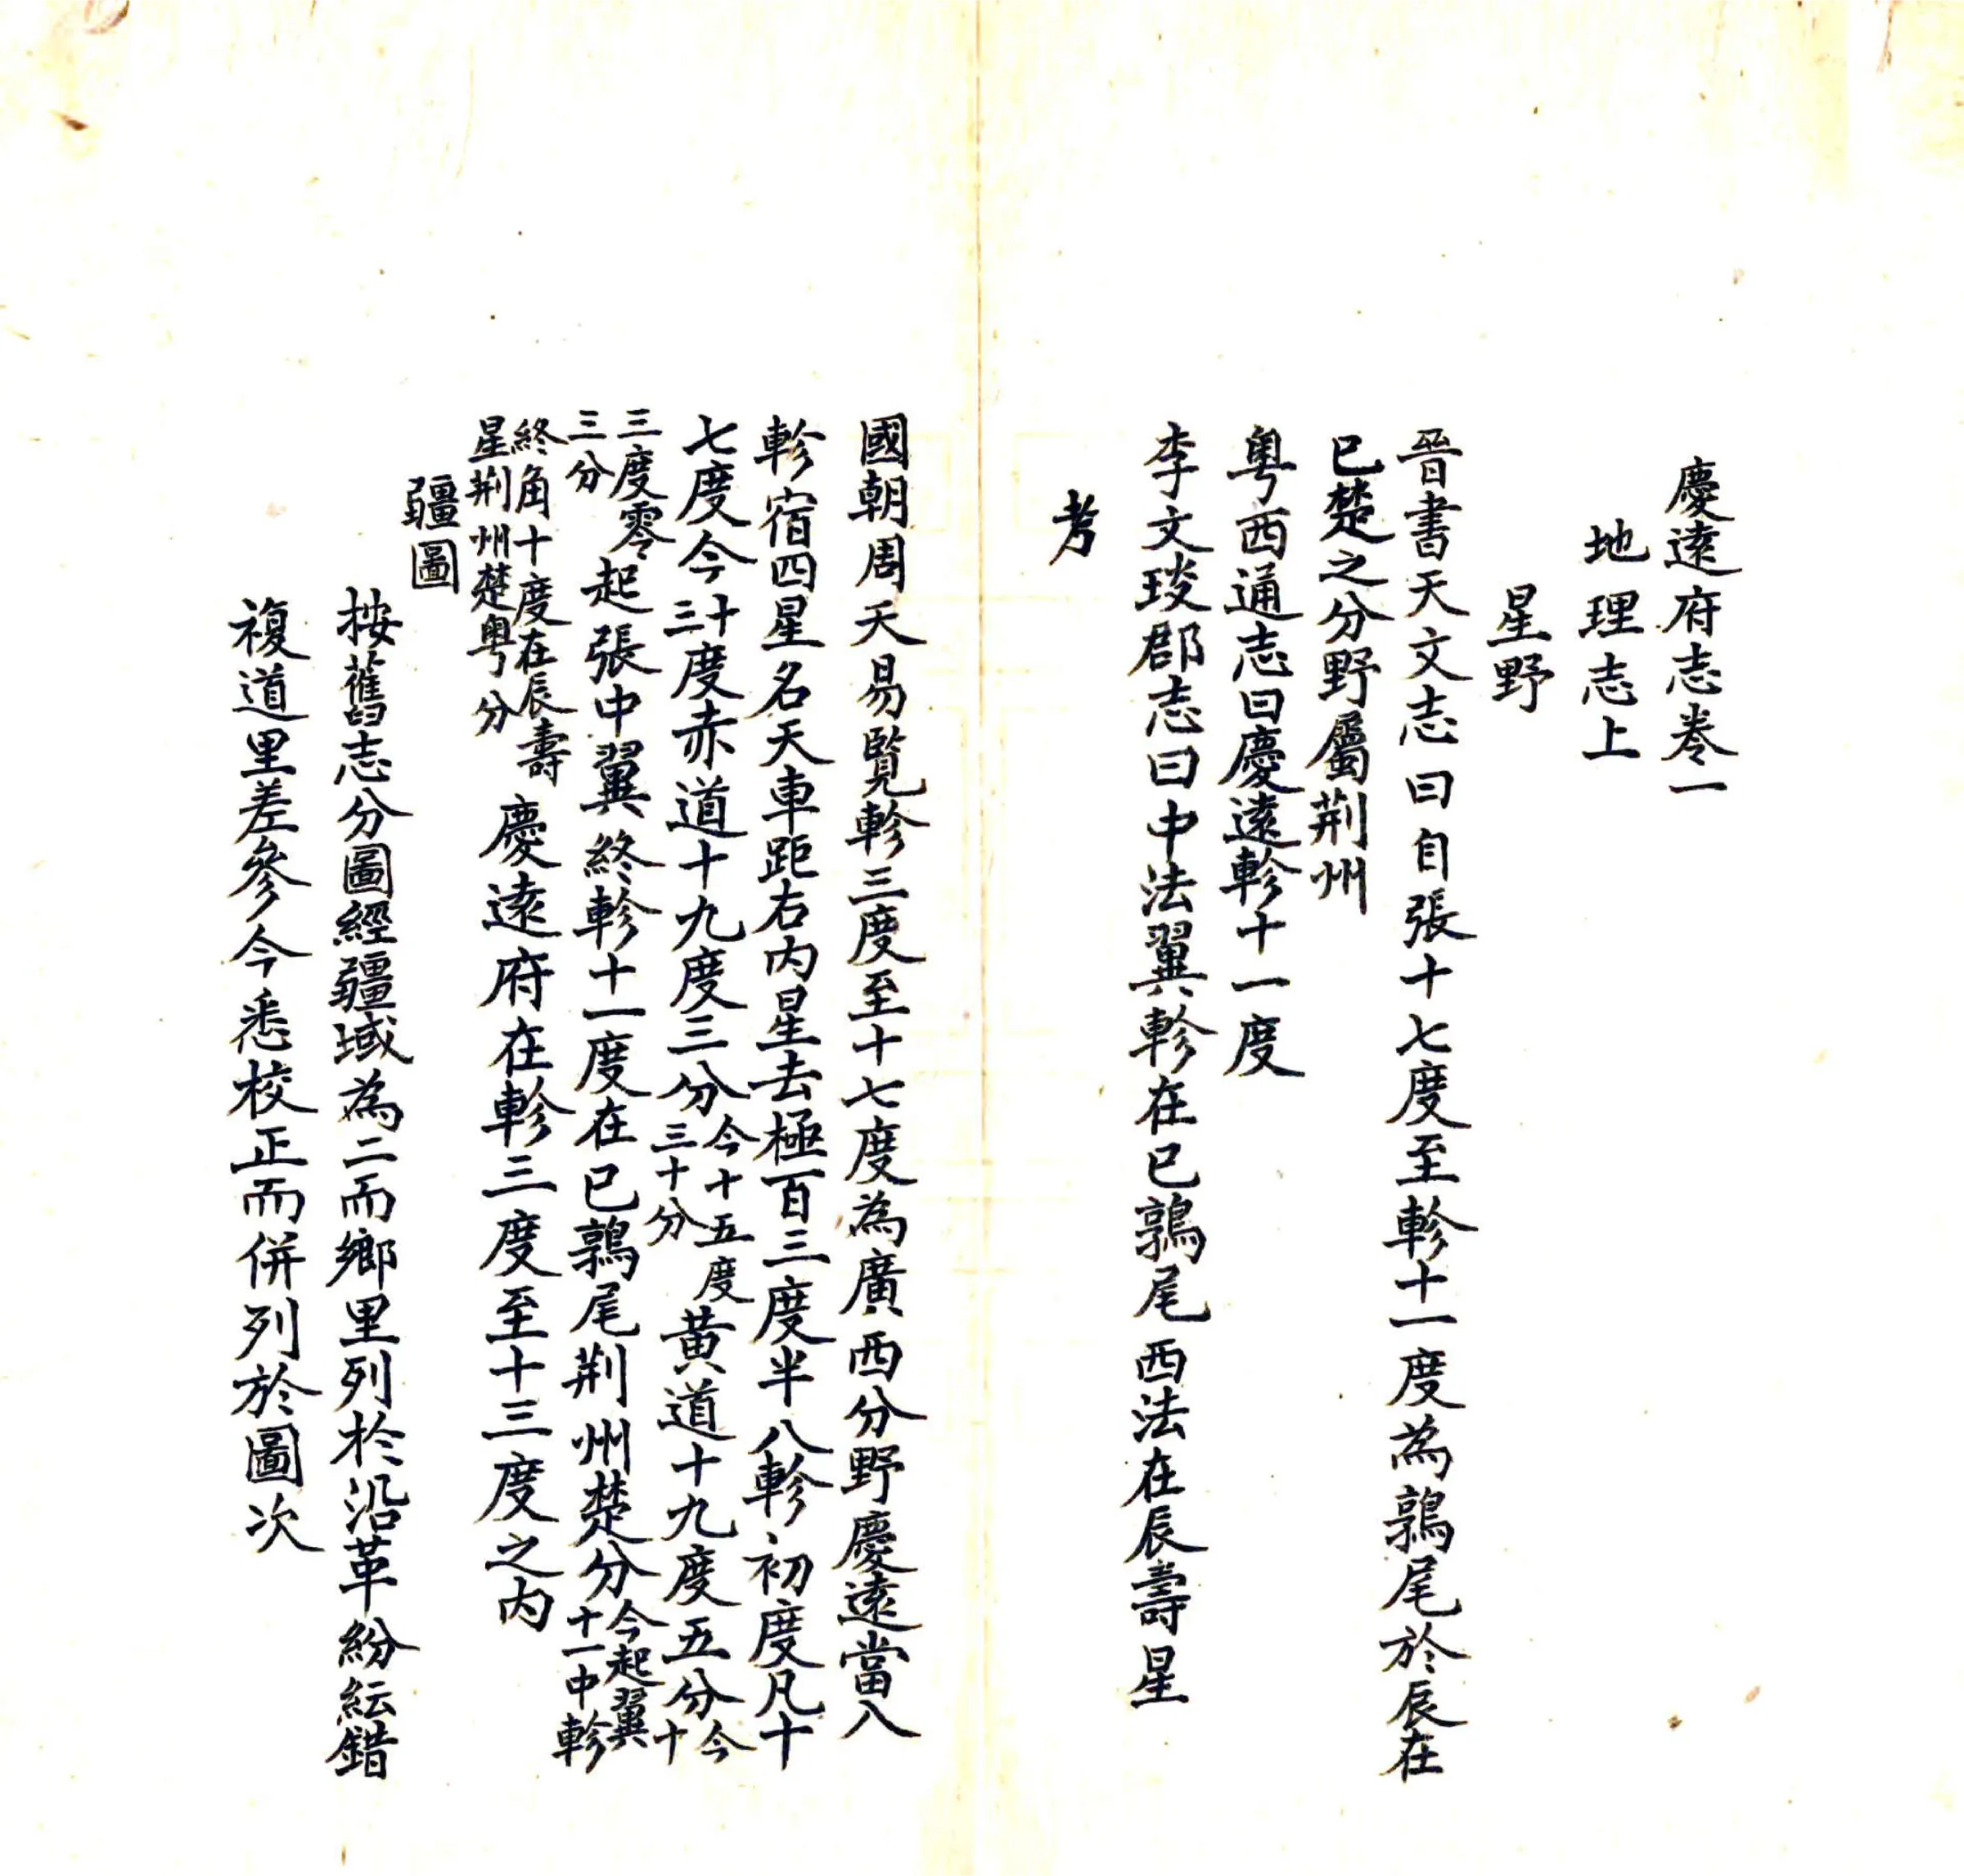 慶遠府志卷一
地理志上
星野
晉書天文志曰自張十七度至軫十一度為鶉尾於辰在
巳楚之分野屬荆州
粤西通志曰慶遠軫十一度
李文琰郡志曰中法翼軫在巳鶉尾西法在辰壽星
考
國朝周天易覽軫三度至十七度為廣西分野慶遠當八
軫宿四星名天車距右內星去極百三度半八軫初度凡十
七度今十三度赤道十九度三分今十五度三十分黃道十九度五分今十
三度零三分起張中翼終軫十一度在巳鶉尾荆州楚分今起翼十一中軫
終角十度在辰壽星荆州楚粤分慶遠府在軫三度至十三度之內
疆圖
按舊志分圖經疆域為二而鄉里列於沿革紛紜錯
複道里差參今悉校正而併列於圖次